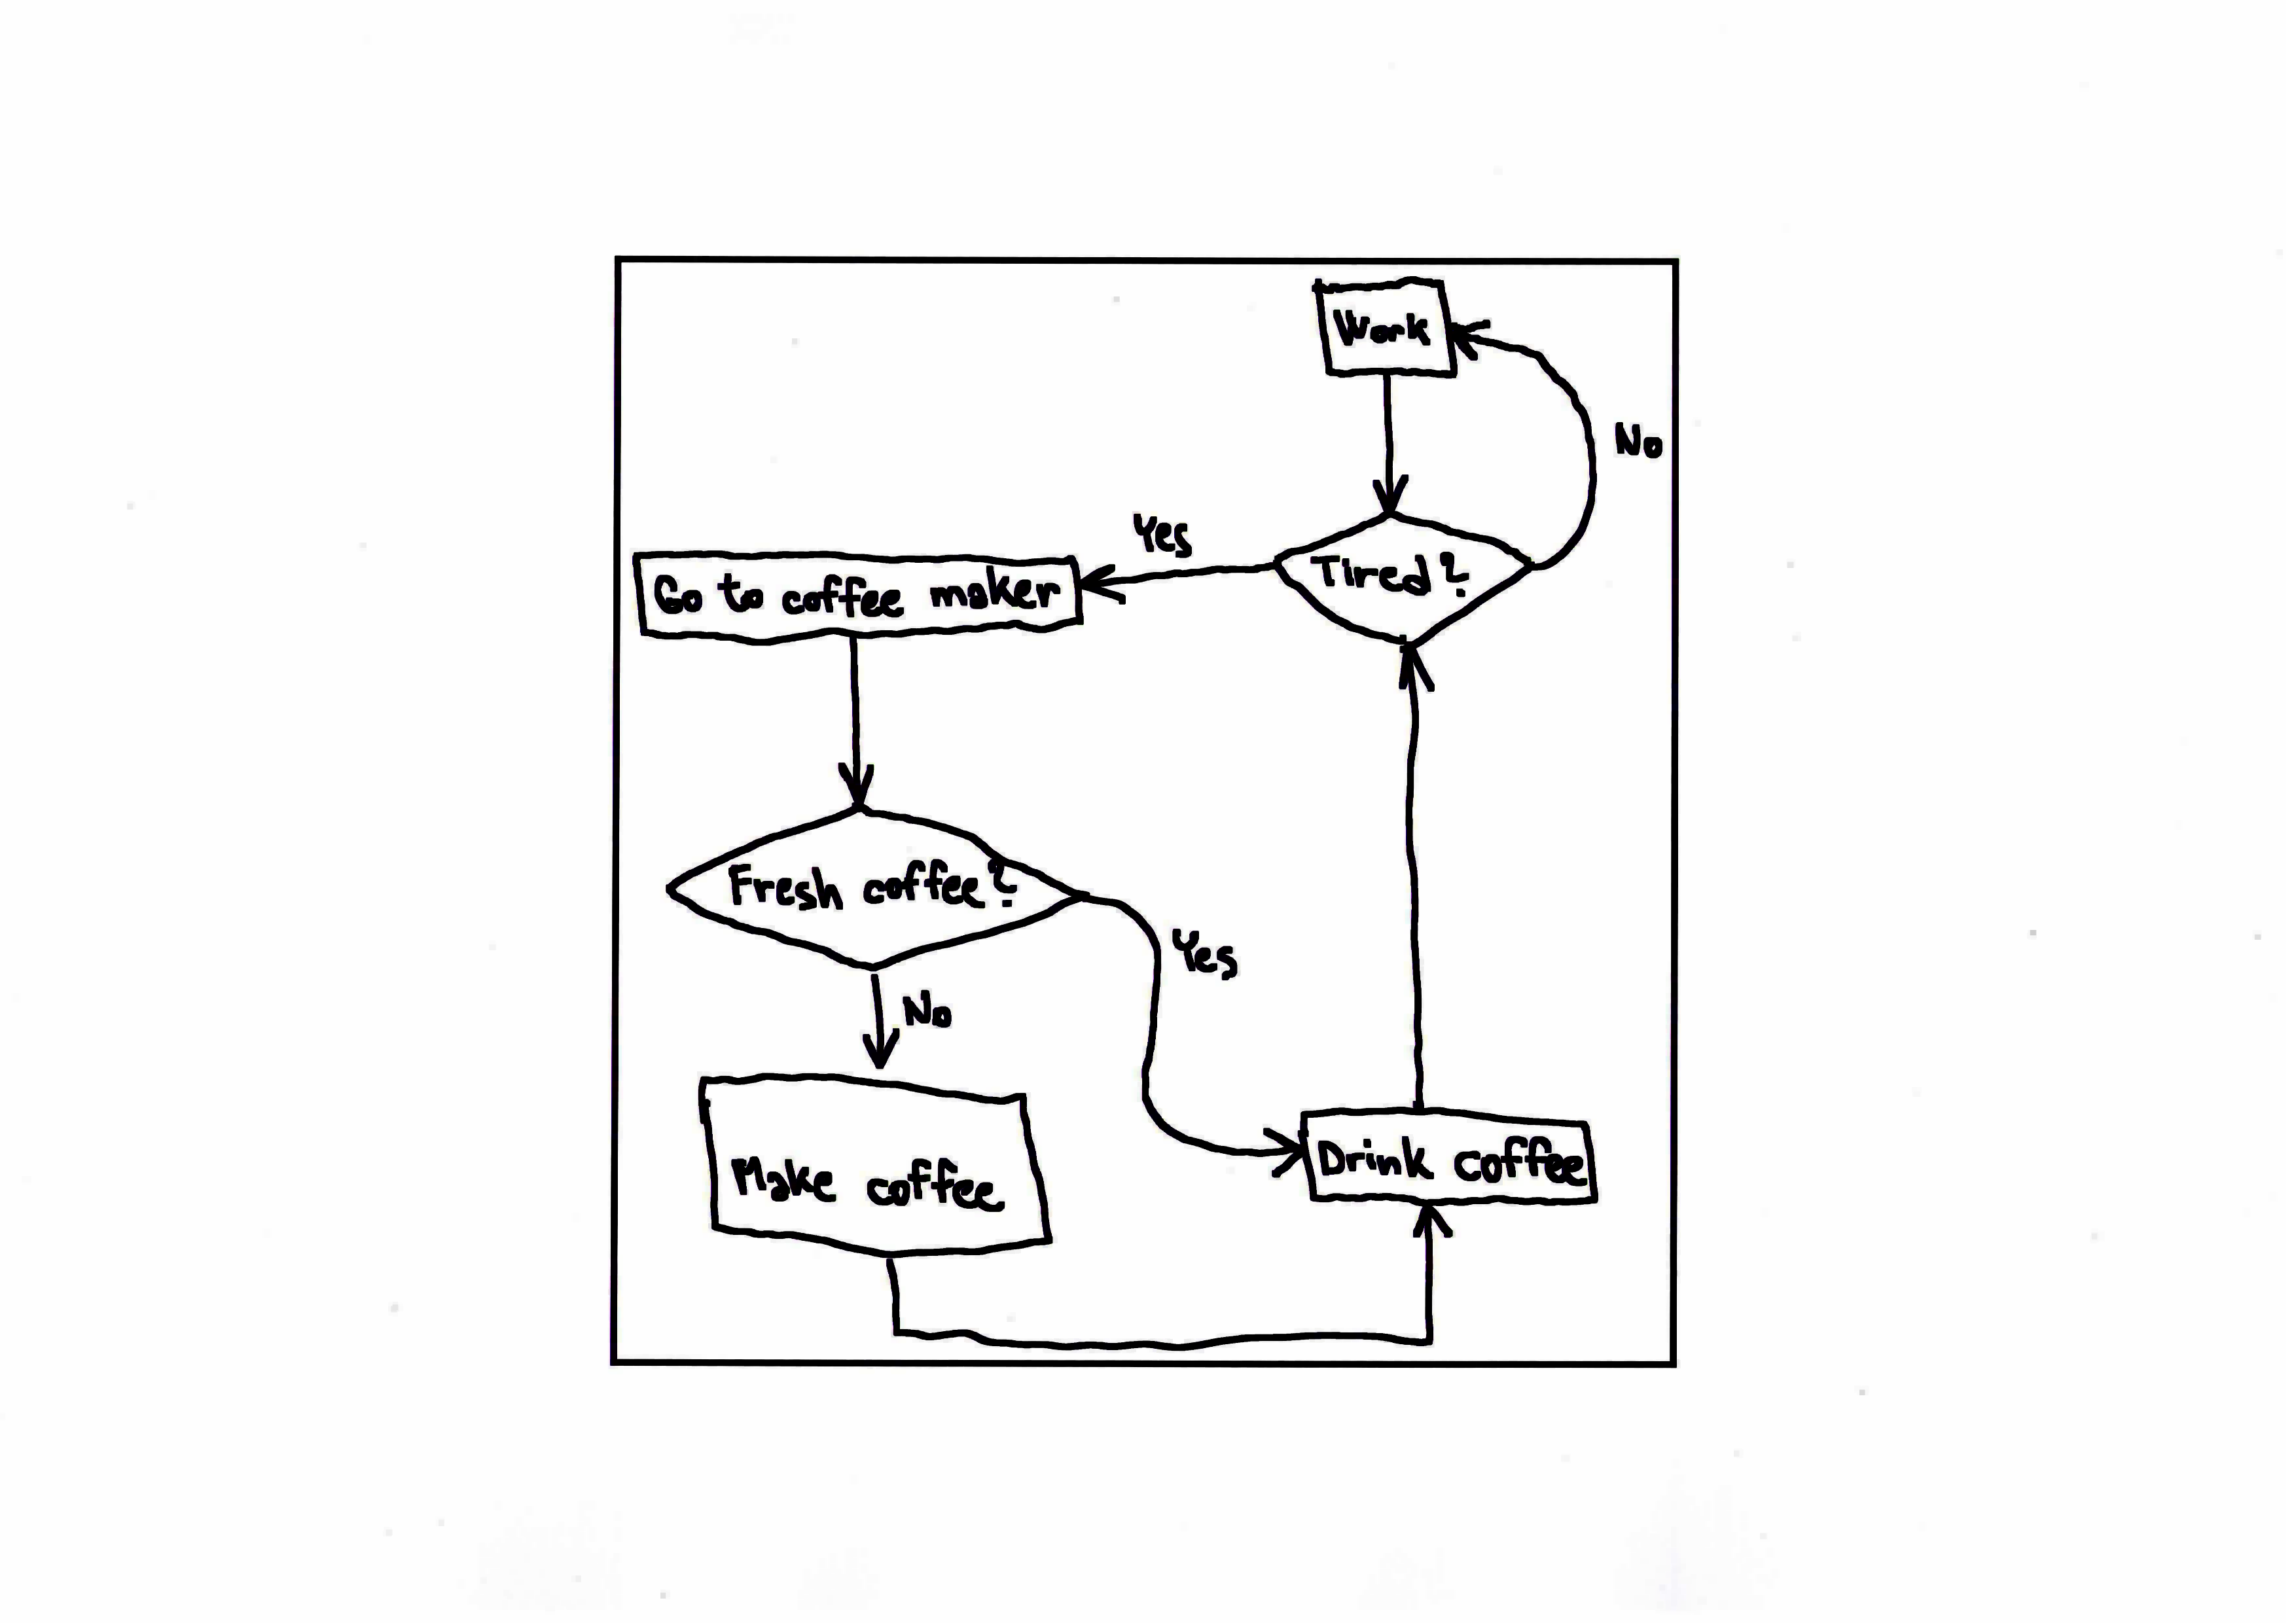 Work
No
Yes
Tired?
Go to coffee maker
Fresh coffee?
Yes
No
Make coffee
Drink coffee